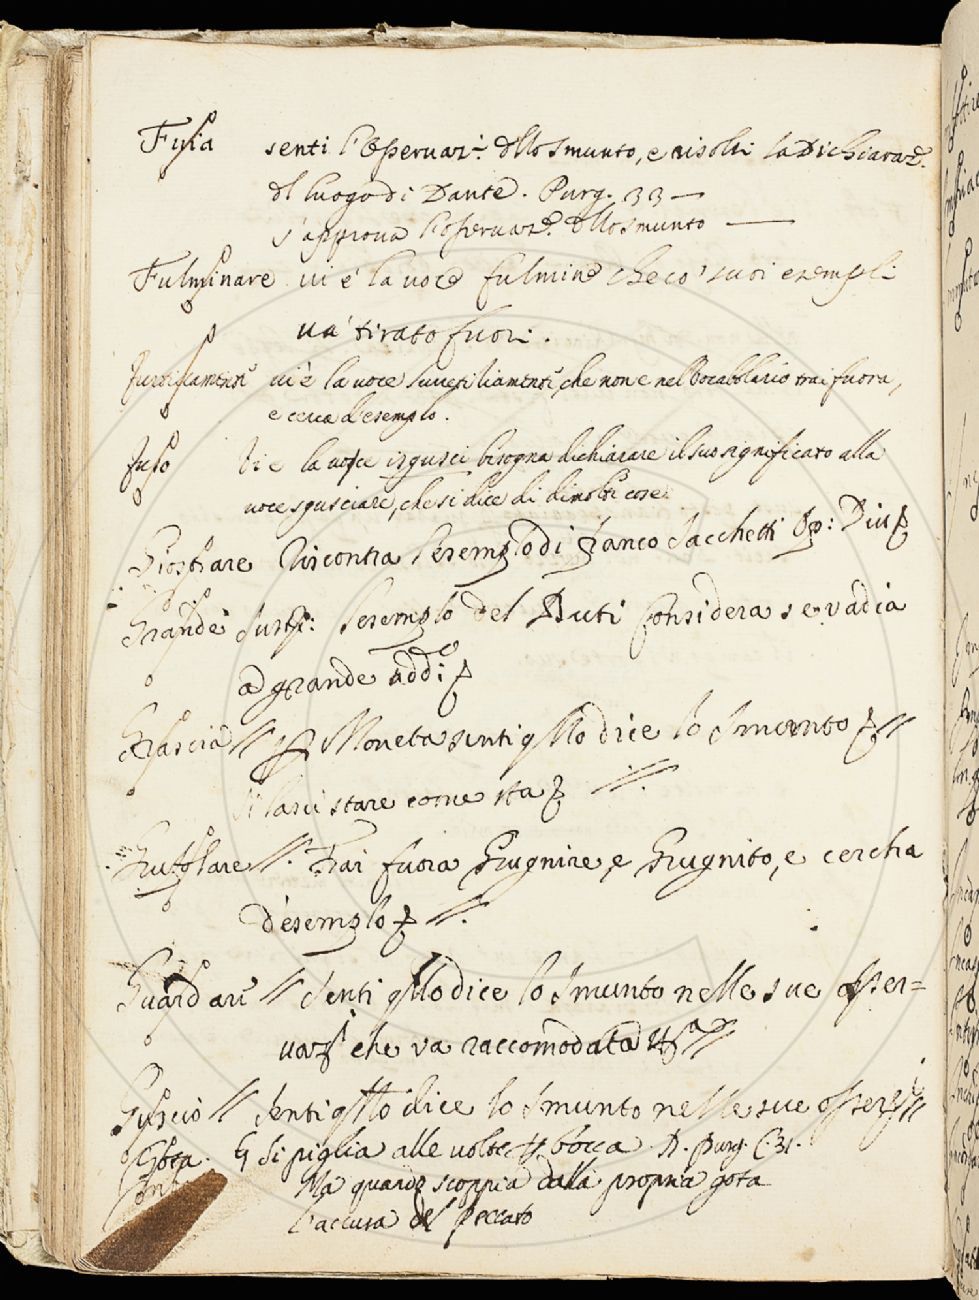 Fusia senti l'Osservaz.ⁱ dello Smunto, e risolvi la Dichiaraz.ᵉ
del luogo di Dante. Purg. 33 —
s'approva l'Osservaz.ᵉ dello Smunto —
Fulminare vi è la voce fulmine che co' suoi esempli
và tirato fuori.
vi è la voce che non è nel Vocabolario trai fuora,
e cerca d'esemplo.
Fuso Vi è la voce isgusci bisogna dichiarare il suo significato alla
voce sgusciare, che si dice di di molti cose.
Giostrare Riscontra l'esemplo di Franco Sacchetti Op: Div
Grande Sust: l'esemplo del Buti Considera se vadia
a grande Addi
Grascia // Moneta senti qllo dice lo Smunto //
si lasci stare come sta //.
Grufolare //. Trai fuora Grugnire, e Grugnito, e cercha
d'esemplo //.
Guardare // Senti qllo dice lo Smunto nelle sue osser=
vaz.ⁱ che va raccomodata //
Guscio // Senti qllo dice lo Smunto nelle sue osserz.ⁱ //
Gota. Si piglia alle volte p bocca D. Purg. C. 31.
Ma quando scoppia dalla propria gota
L'accusa del peccato